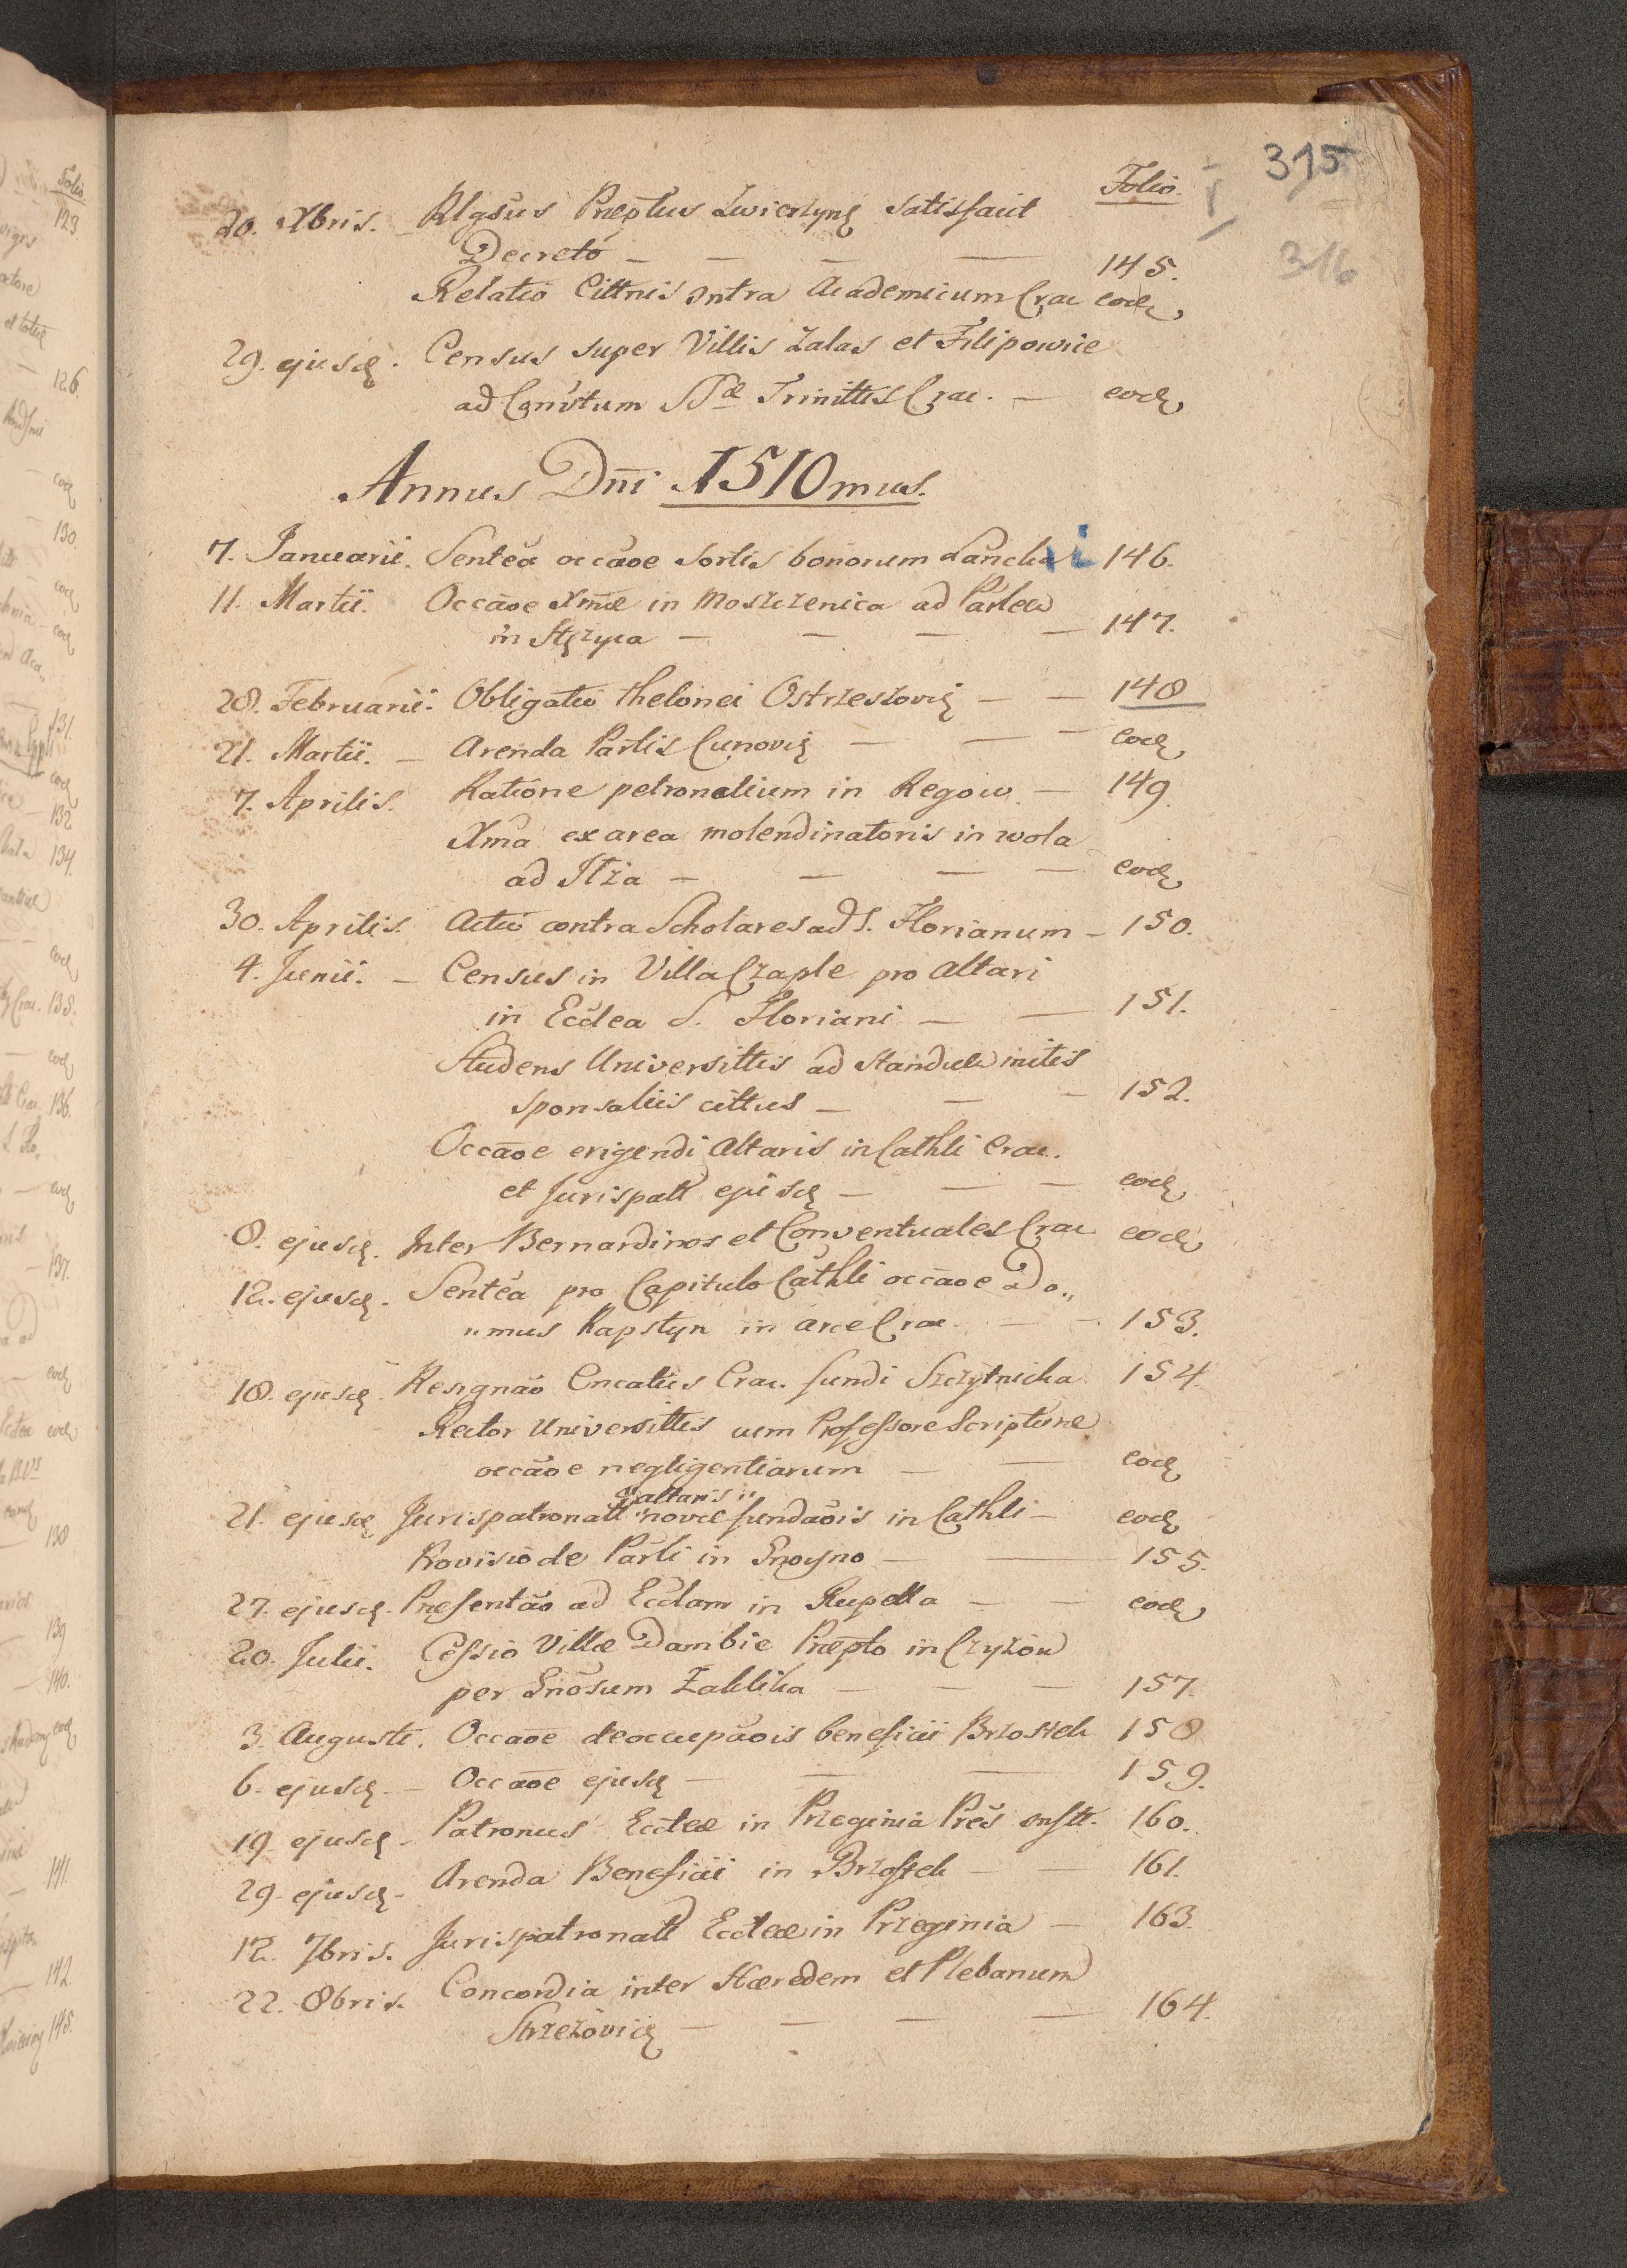 Folio.
315
316
20. Xbris. Rlgsus Præptus Zwierzynę satisfacit
Decreto — — — — 145.
Relatio Cittnis ontra Academicum Crac eodę
29. ejusdę. Census super Villis Zalas et Filipowice
ad Convtum SSæ Trinittis Crac. — eodę
Annus Dñi 1510mus.
7. Januarii. Sentea occaoe sortis bonorum Lancka 146.
11. Martii. Occãoe Xmæ in Moszczenica ad Parlem
in Stęzyca — — — — 147.
28. Februarii. Obligatio thelonei Ostrzeszovię — — 148
21. Martii. — Arenda Partis Cunovię — — — eodę
7. Aprilis. Ratione petronalium in Regow — 149.
Xma ex area molendinatoris in wola
ad Ilza — — — — eodę
30. Aprilis. Actio contra Scholares ad S. Florianum — 150.
4. Junii. — Census in Villa Czaple pro altari
in Ecclea S. Floriani — — 151.
Studens Universittis ad standum initis
sponsaliis cittus — — — 152.
Occãoe erigendi Altaris in Cathli Crac.
et Jurispatt ejusdę — — — eodę
8. ejusdę. Inter Bernardinos et Conventuales Crac eodę
12. ejusdę. Sentea pro Capitulo Cathli occãoe Do„
„mus Rapstyn in arce Crac. — — 153.
18. ejusdę. Resignão Cncatus Crac. fundi Szczytnicka 154.
Rector Universittis cum Professore Scripturæ
occãoe negligentiarum — — eodę
„altaris„
21. ejusdę Jurispatronatt novæ fundãois in Cathli — eodę
Provisio de Parli in Gnoyno — — 155.
27. ejusdę. Præsentão ad Ecclam in Rupella — — eodę
20. Julii. Cessio Villæ Dambie Præpto in Czyżow
per Gnosum Zaklika — — — 157.
3. Augusti. Occãoe deoccupãois beneficii Brzostek 158
6. ejusdę. — Occãoe ejusdę — — — 159.
19. ejusdę. Patronus Eccleæ in Przeginia Pres onstt. 160.
29. ejusdę. Arenda Beneficii in Brzostek — — 161.
12. 7bris. Jurispatronatt Eccleæ in Przeginia — 163.
22. 8bris. Concordia inter Hæredem et Plebanum
Strzeżovicę — — — — 164.